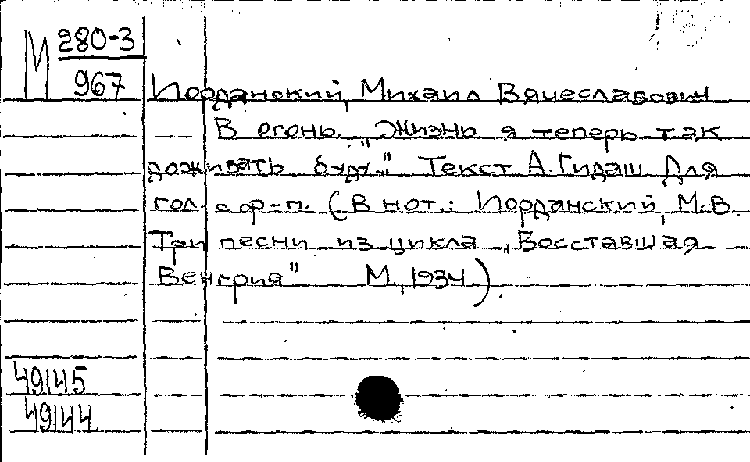 М 280-3
967
Иорданский, Михаил Вячеславович
В огонь. "Жизнь я теперь так
доживать буду." Текст А. Гидаш Для
гол. с ф-п. (В нот.: Иорданский, М.В.
Три песни из цикла „Восставшая
Венгрия" М, 1934).
49145
49144